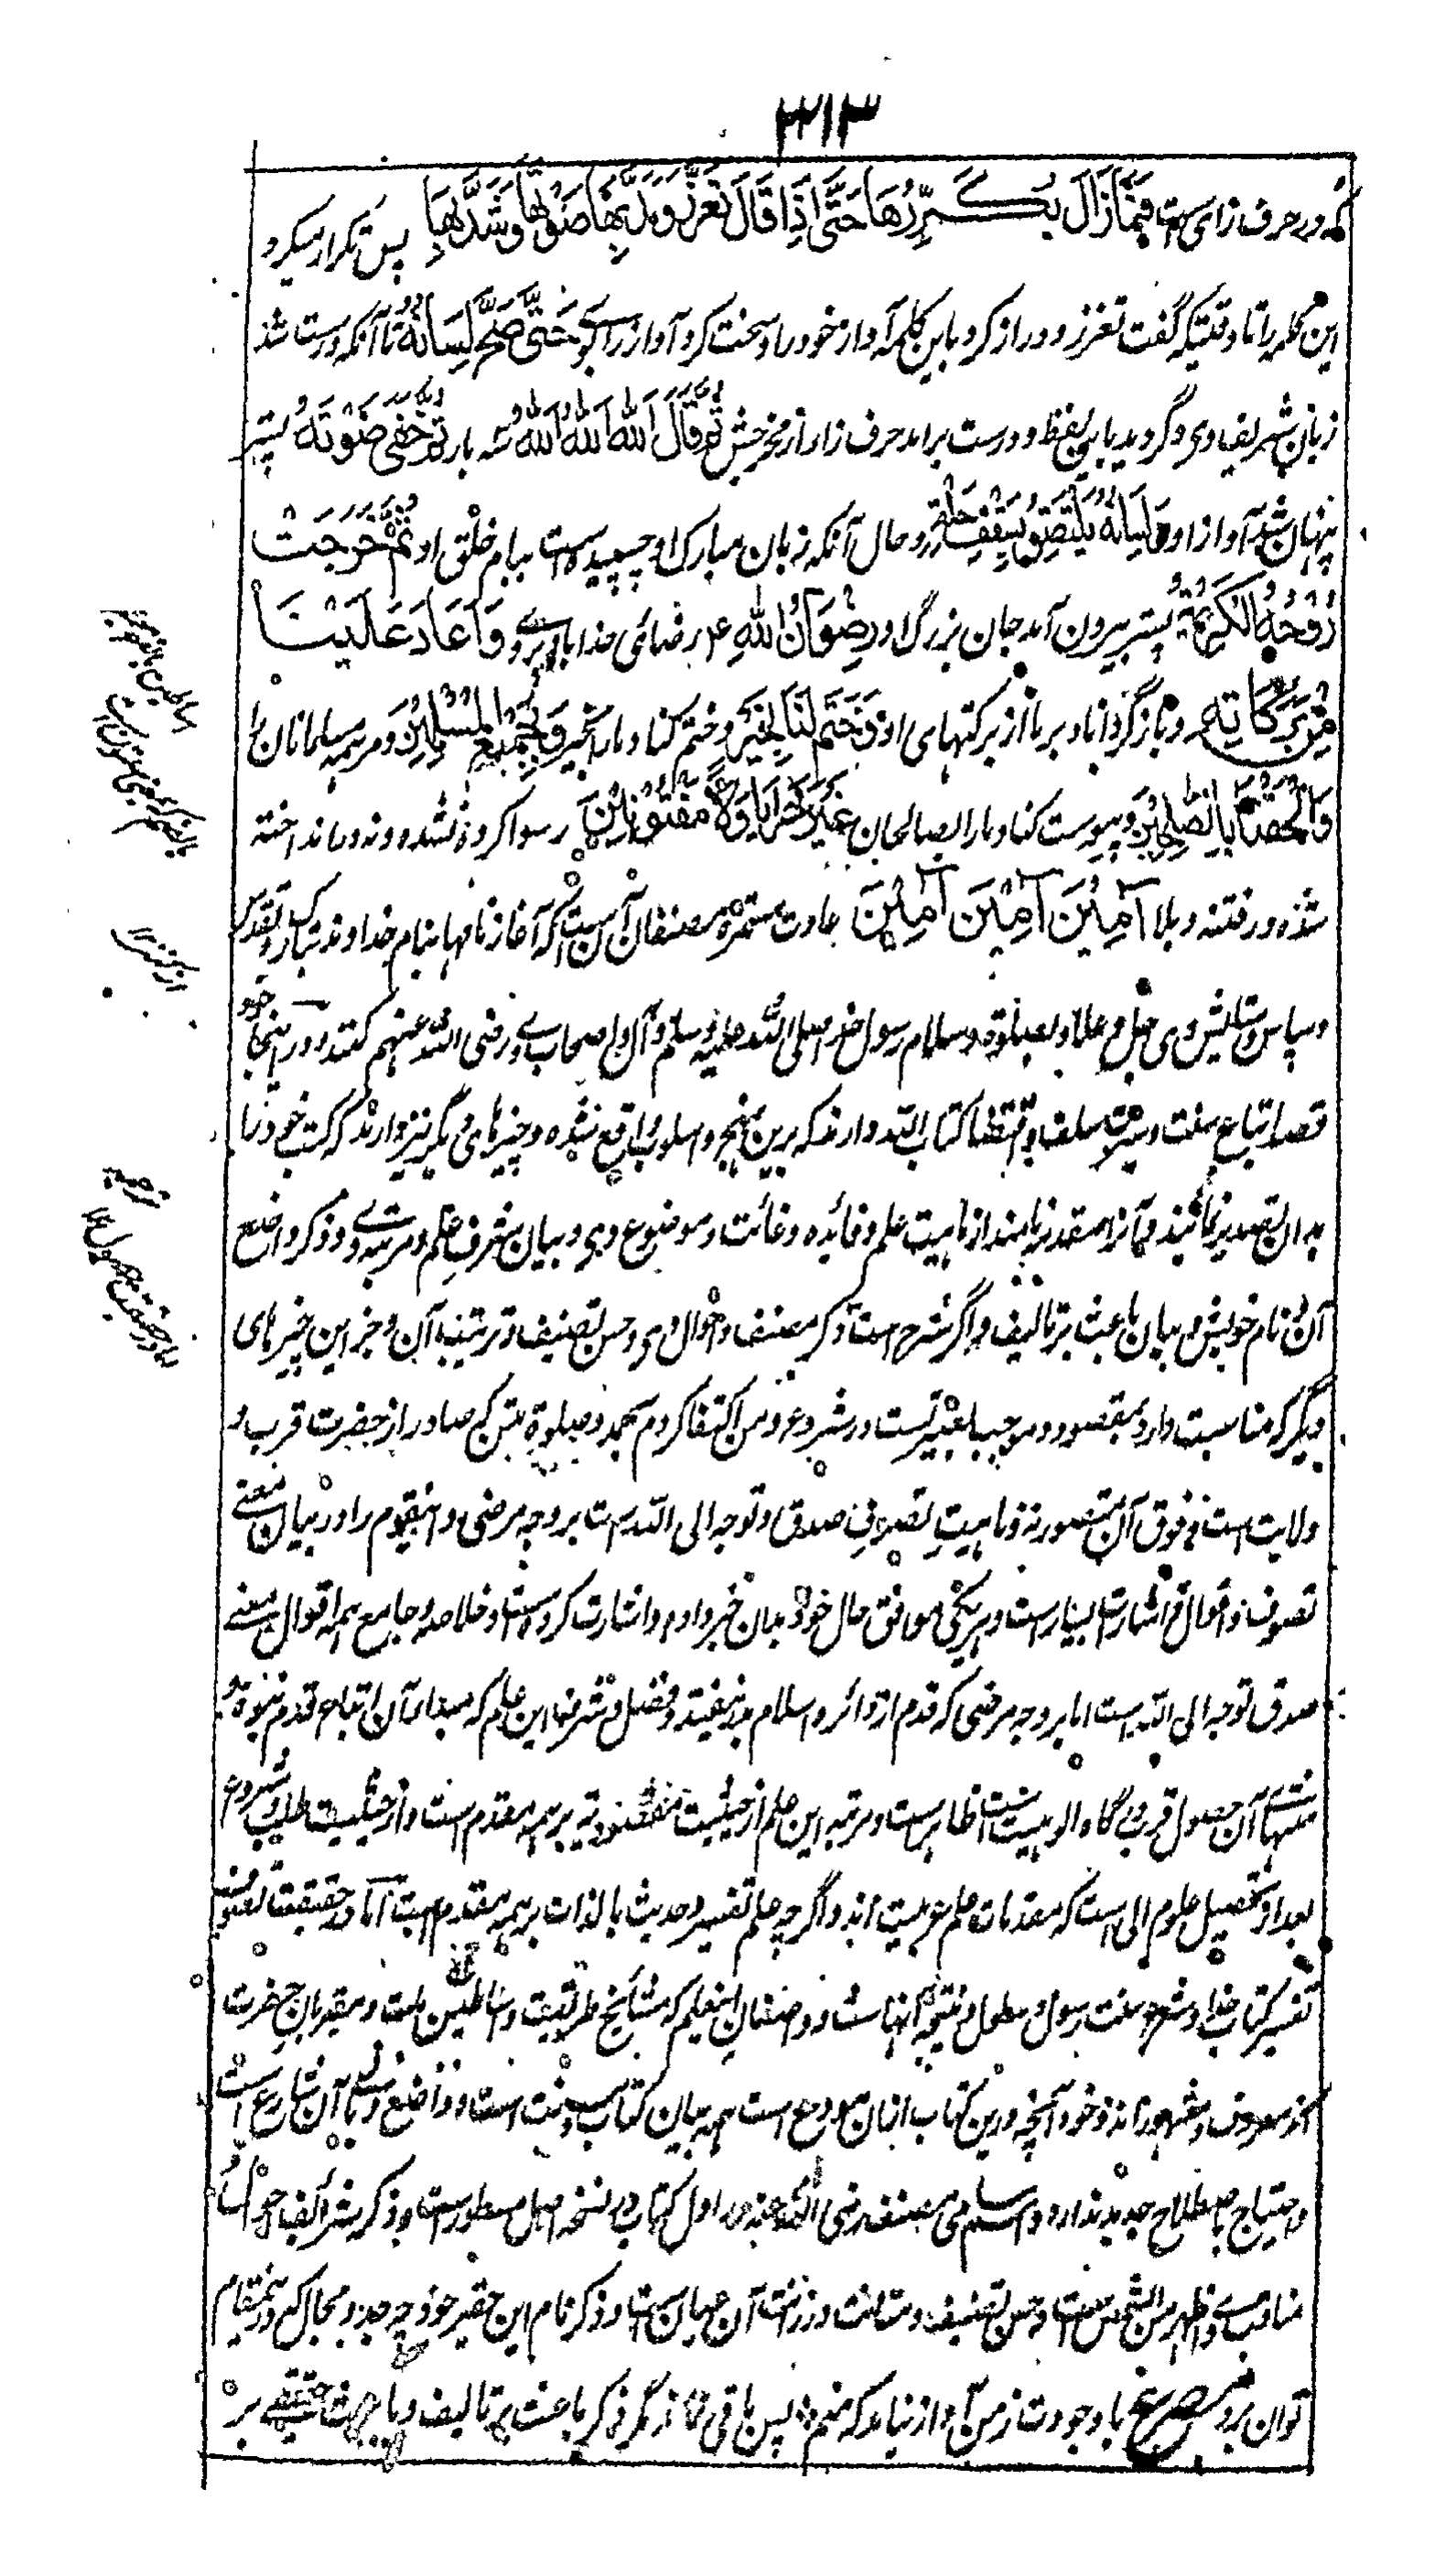 ۳۱۳
که در حرف زای ست فَمَا زَالَ یُکَرِّرُهَا حَتّٰی اِذَا قَالَ تَعَزَّزَ وَمَدَّ بِهَا صَوْتَهٗ وَشَدَّ بِهَا پس تکرار میکرد
این کلمه را تا وقتیکه گفت تعزز و دراز کرد باین کلمه آواز خود را و سخت کرد آواز را حَتّٰی صَحَّ لِسَانُهٗ تا آنکه درست شد
زبان شریف وی و گردید باین لفظ و درست برآمد حرف زا را از مخرجش ثُمَّ قَالَ اَللّٰهُ اَللّٰهُ اَللّٰهُ سه بار ثُمَّ خَفِیَ صَوْتُهٗ پستر
پنهان شد آواز او وَلِسَانُهٗ مُلْتَصِقٌ بِسَقْفِ حَلْقِهٖ و حال آنکه زبان مبارک او چسپیده است ببام حلق او ثُمَّ خَرَجَتْ
رُوْحُهُ الْکَرِیْمَةُ پستر بیرون آمد جان بزرگ او رِضْوَانُ اللّٰهِ رضای خدا باد بر وی وَاَعَادَ عَلَیْنَا
مِنْ بَرَکَاتِهٖ و باز گرداناد بر ما از برکتهای او وَخَتَمَ لَنَا بِخَیْرٍ و ختم کناد ما را بخیر وَلِجَمِیْعِ الْمُسْلِمِیْنَ و مر همه مسلمانان را
وَاَلْحَقَنَا بِالصّٰلِحِیْنَ و پیوست کناد ما را بصالحان غَیْرَ خَزَایَا وَلَا مَفْتُوْنِیْنَ رسوا کرده نشده و نه در انداخته
شده در فتنه و بلا اٰمِیْنَ اٰمِیْنَ اٰمِیْنَ عادت مستمره مصنفان آن ست که آغاز نامها بنام خداوند تبارک و تقدس
و سپاس و ستایش وی جل و علا و بصلوة و سلام رسول خدا صلی الله علیه وسلم و آل و اصحاب وی رضی الله عنهم کنند و در اینجا
قصد اتباع سنت و سیرت سلف و اقتفا کتاب الله دارند که برین نهج و اسلوب واقع شده و چیزهای دیگر نیز دارند که کتب خود را
بدان تصدیر نمایند و آنرا مقدمه نامند از ماهیت علم و فائده و غائت و موضوع وی و بیان شرف علم و مرتبه وی و ذکر واضع
آن و نام خویش و بیان باعث بر تالیف و اگر شرح است ذکر مصنف و احوال وی و حسن تصنیف و ترتیب آن و جز این چیزهای
دیگر که مناسبت دارد بمقصود و موجب بصیرتست در شروع و من اکتفا کردم بحمد و صلوة متن که صادر از حضرت قرب و
ولایت است و فوق آن متصور نه و ماهیت تصوف صدق و توجه الی الله ست بر وجه مرضی و این قوم را در بیان معنی
تصوف اقوال و اشارات بسیار است و هر یکی موافق حال خود بدان خبر داده و اشارت کرده است و خلاصه و جامع همه اقوال معنی
صدق توجه الی الله ست اما بر وجه مرضی که قدم از دائره اسلام بدر نیفتد و فضل و شرف این علم که مبداء آن اتباع قدم نبوت و
منتهای آن حصول قرب درگاه الوهیت است ظاهر است و مرتبه این علم از حیثیت مقصودیه بر همه مقدم است و از حیثیت طلب و شروع
بعد از تحصیل علوم آلی است که مقدمات علم عربیت اند و اگر چه علم تفسیر و حدیث بالذات بر همه مقدم است اما در حقیقت تصوف
تفسیر کتاب خدا و شرح سنت رسول و محصول و نتیجه آنهاست و واضعان این علم که مشائخ طریقت و اساطین ملت و مقربان حضرت
اند معروف و مشهور اند و خود آنچه درین کتاب ازان مودع است همه بیان کتاب و سنت است و واضع و بانی آن شارع است
و احتیاج باصطلاح جدید ندارد و اسم سامی مصنف رضی الله عنه در اول کتاب در نسخه اصل مسطور ست و ذکر شرائف احوال و
مناقب وی اظهر من الشمس ست و حسن تصنیف و متانت و رزانت آن عیان ست و ذکر نام این حقیر خود چه حد و مجال که درین مقام
توان برد مصرع با وجودت ز من آواز نیاید که منم پس باقی نماند مگر ذکر باعث بر تالیف و باعث حقیقی بر